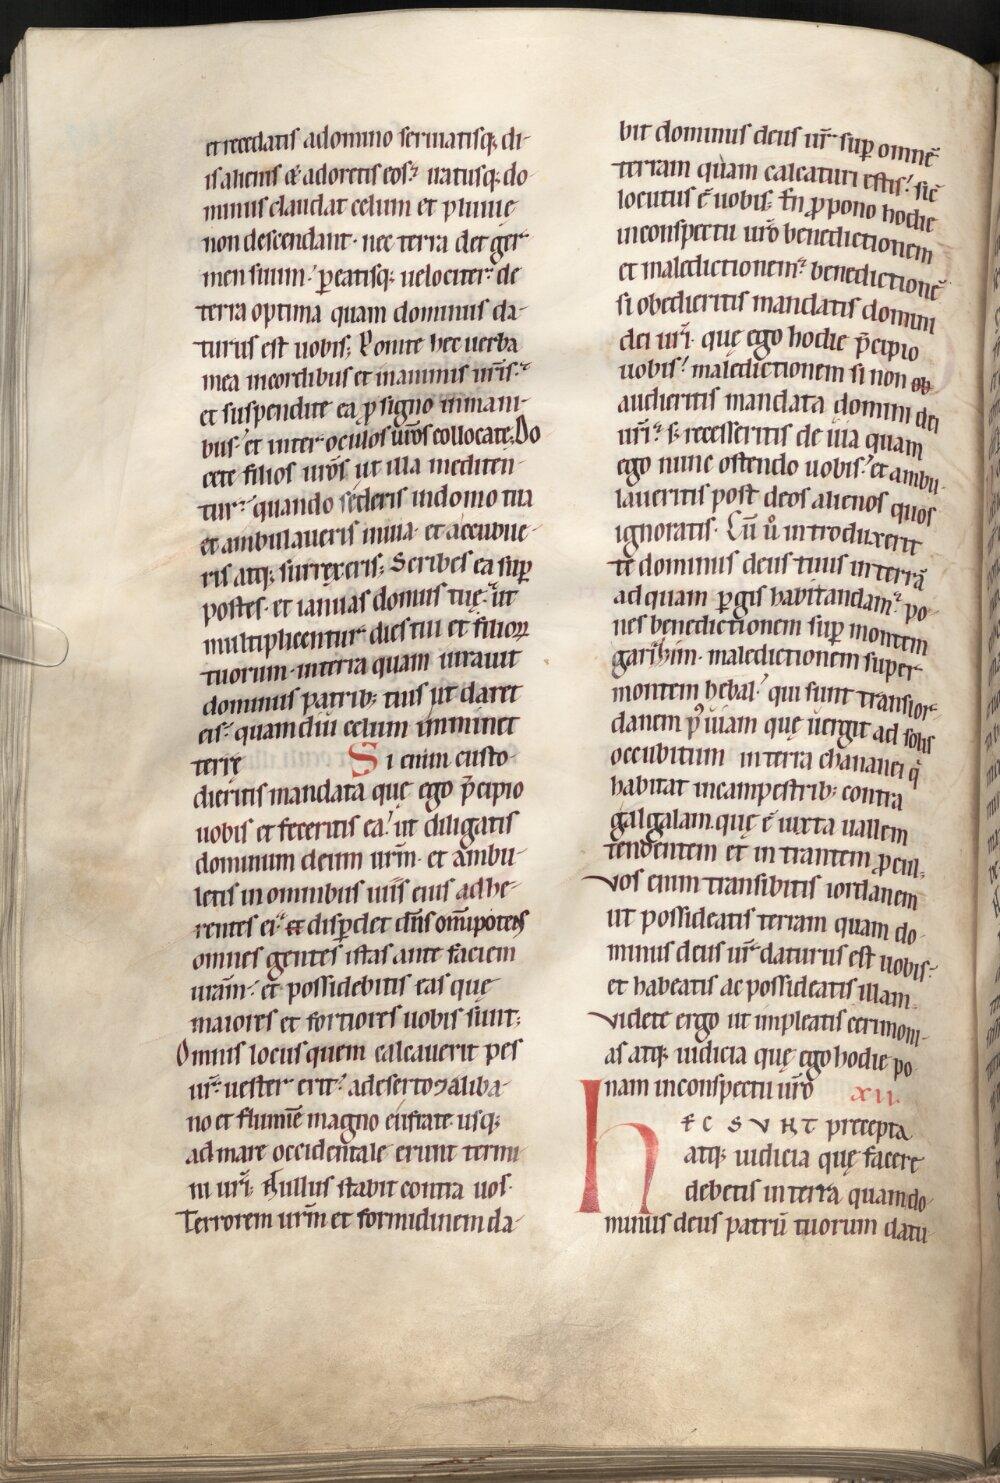 et recedatis adomino seruiatisq; di-
is alienis & adoretis eos? iratusq; do-
minus claudat celum et pluuie
non descendant · nec terra det ger-
men suum? p̱eatisq; uelociter de
terra optima quam dominus da-
turus est uobis; Ponite hec uerba
mea incordibus et inanimis ur̄is?
et suspendite ea ꝓ signo inmani-
bus? et inter oculos ur̄os collocate; Do
cete filios ur̄os ut illa mediten-
tur? quando sederis indomo tua
et ambulaueris inuia · et accubue-
ris atq; surrexeris; Scribes ea sup̱
postes · et ianuas domus tuę? ut
multiplicentur dies tui et filioꝝ
tuorum · interra quam iurauit
dominus patrib; tuis ut daret
eis? quamdiu celum imminet
terrę Si enim custo
dieritis mandata que ego p̄cipio
uobis et feceritis ea? ut diligatis
dominum deum ur̄m · et ambu-
letis in omnibus uiis eius adhe-
rentes ei? et disp̱det dn̄s om̄ipotens
omnes gentes istas ante faciem
uram̄? et possidebitis eas que
maiores et fortiores uobis sunt;
Omnis locus quem calcauerit pes
ur̄ uester erit? adeserto ⁊ aliba-
no et flumīe magno eufrate usq;
ad mare occidentale erunt termi-
ni ur̄i · Nullus stabit contra uos ·
Terrorem ur̄m et formidinem da-
bit dominus deus ur̄ sup̱ omnē
terram quam calcaturi estis? sic̄
locutus ē uobis; En ꝓpono hodie
inconspectu ur̄o benedictionem
et maledictionem? benedictionē
si obedieritis mandatis domini
dei ur̄i · quę ego hodie p̄cipio
uobis? maledictionem si non ob
audieritis mandata domini dei
ur̄i? s; recesseritis de uia quam
ego nunc ostendo uobis? et ambu-
laueritis post deos alienos quos
ignoratis · Cū ů introduxerit
te dominus deus tuus in terrā
ad quam p̱gis habitandam? po-
nes benedictionem sup̱ montem
garizim · maledictionem super
montem hebal? qui sunt transior-
danem p̊ uiam quę uergit ad solis
occubitum in terra chananei q̄
habitat incampestrib; contra
galgalam · quę ē iuxta uallem
tendentem et intrantem ꝓcul;
Vos enim transibitis iordanem
ut possideatis terram quam do-
minus deus ur̄ daturus est uobis?
et habeatis ac possideatis illam ·
Videte ergo ut impleatis cerimoni-
as atq; iudicia quę ego hodie po
nam inconspectu ur̄o xii.
HEC SVNT precepta
atq; iudicia quę facere
debetis in terra quam do-
minus deus patrū tuorum datu-